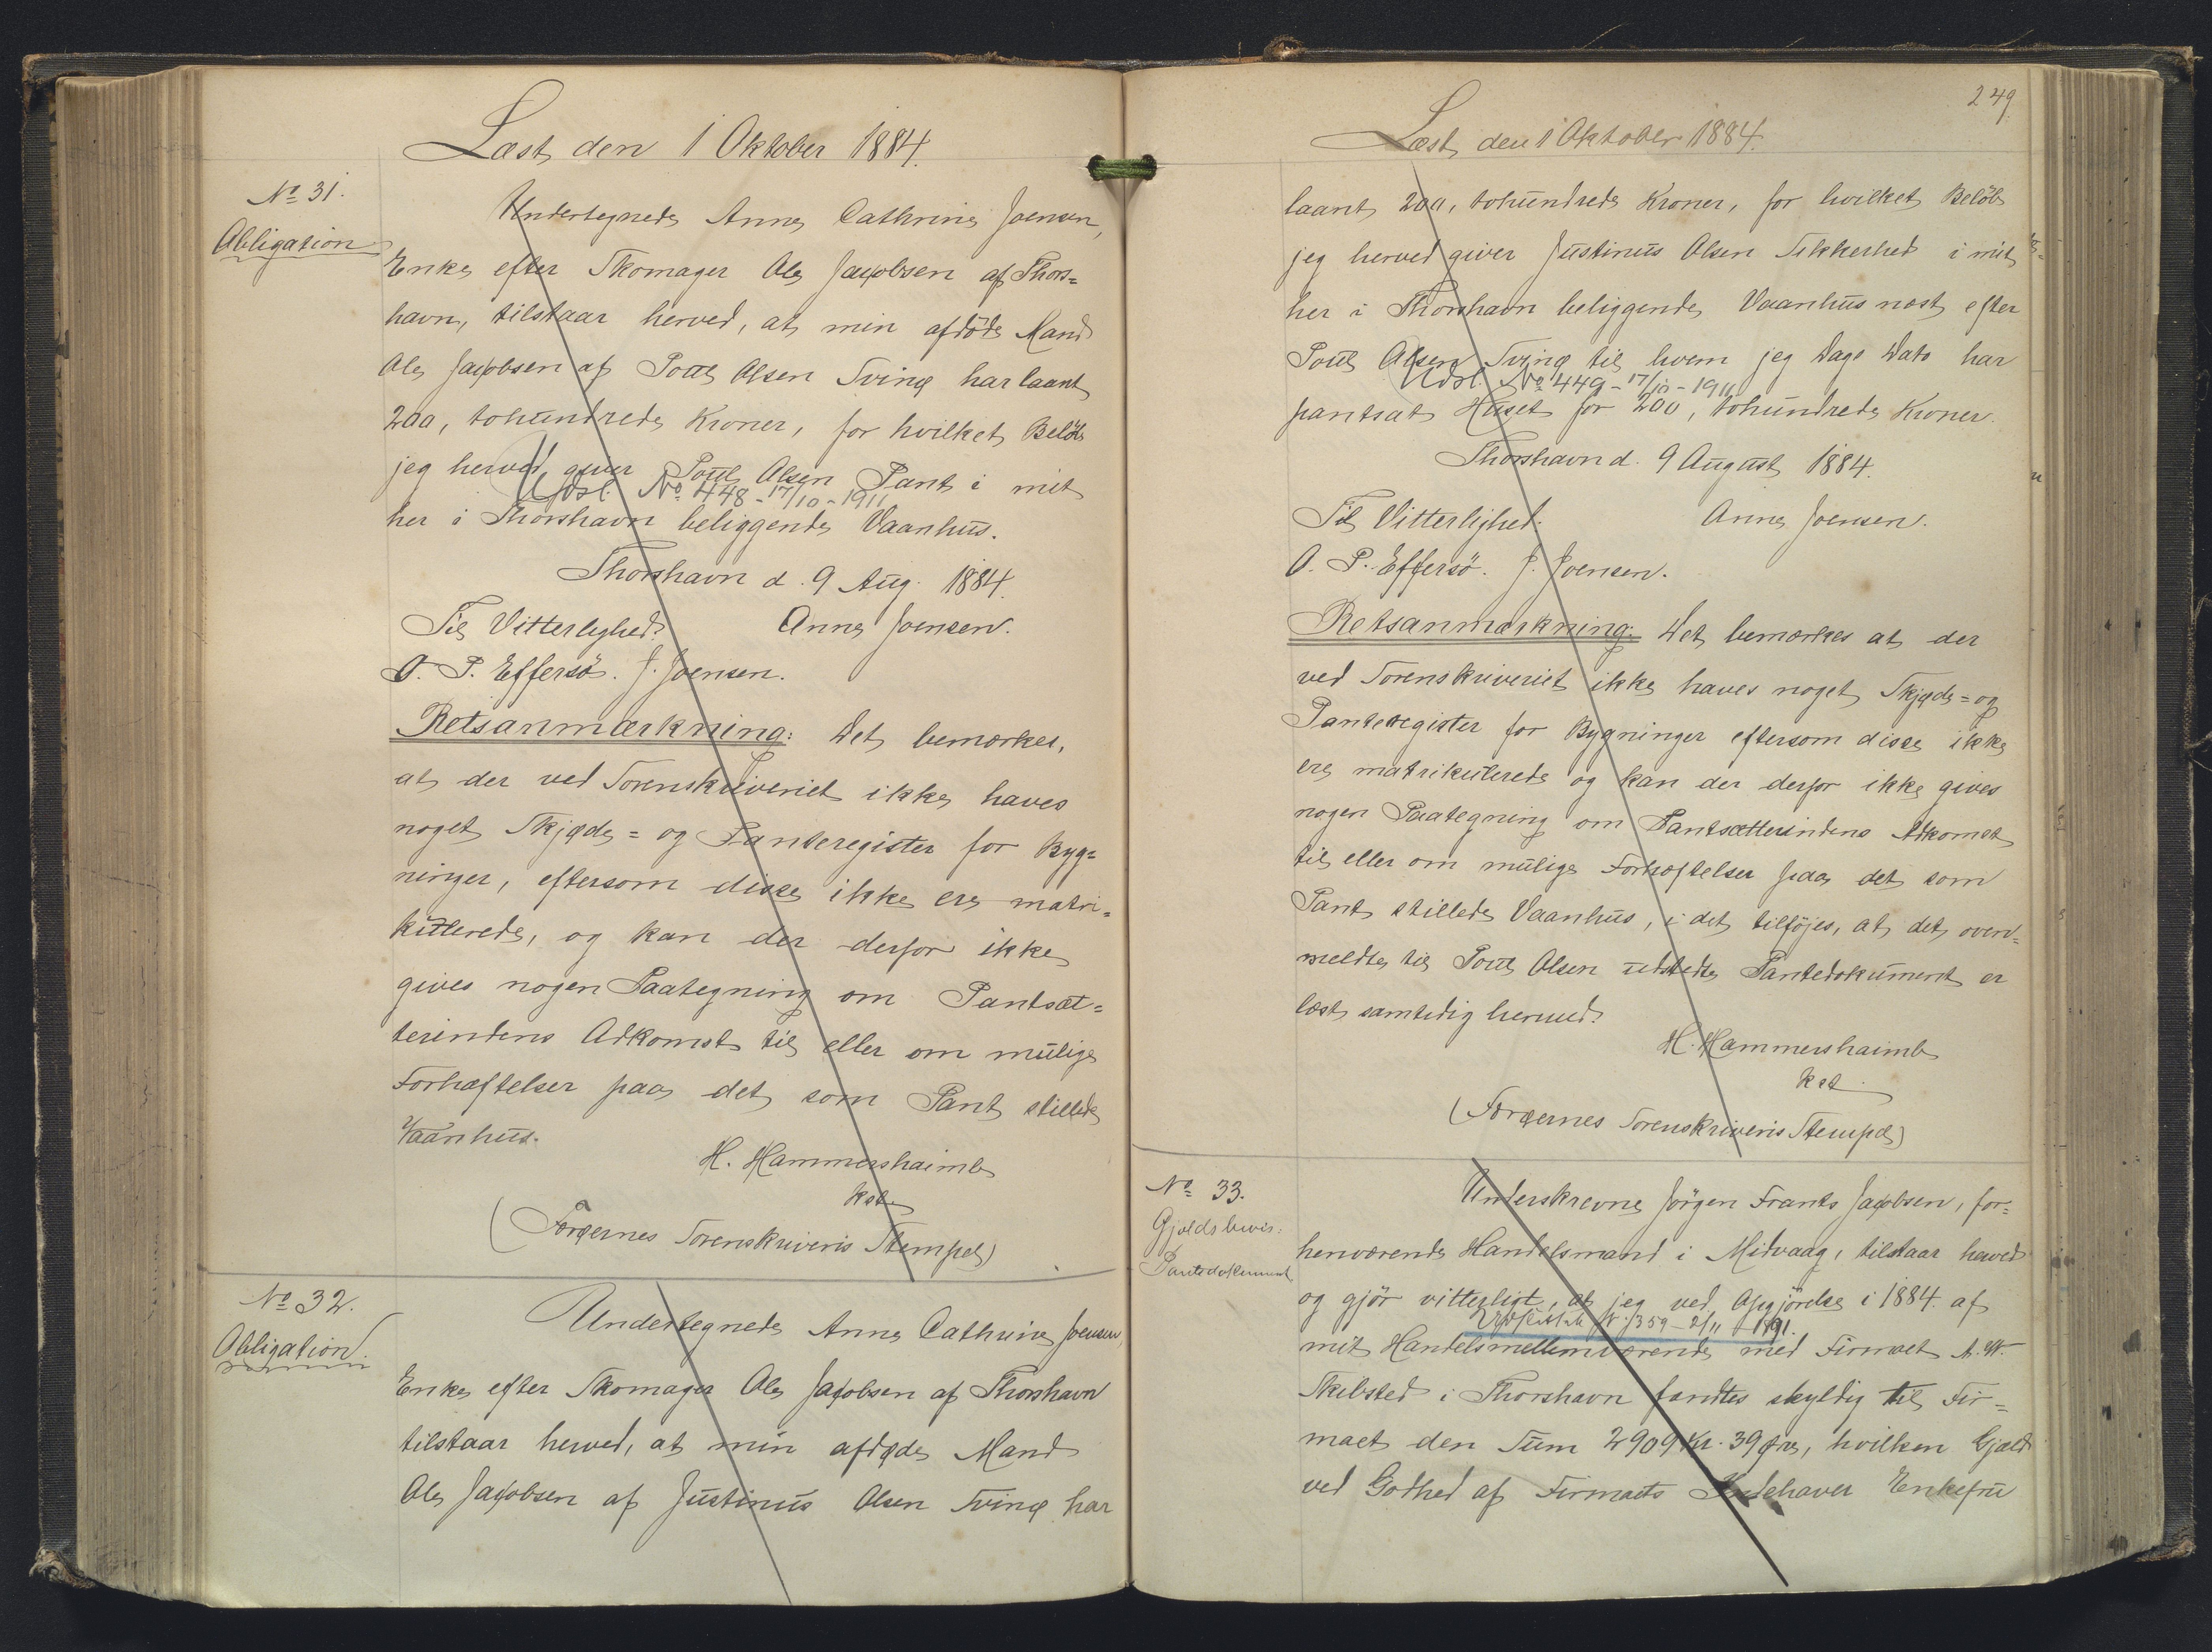 Læst den 1 Oktober 1884.
No 31.
Obligation
Undertegnede Anne Cathrine Joensen,
Enke efter Skomager Ole Jacobsen af Thors=
havn, tilstaar herved, at min afdöde Mand
Ole Jacobsen af Poul Olsen Tving har laant
200, tohundrede Kroner, for hvilket Belöb
jeg herved giver Poul Olsen Pant i mit
Udsl. No 448 - 17/10 - 1911
her i Thorshavn beliggende Vaanhus.
Thorshavn d. 9 Aug. 1884.
Til Vitterlighed: Anne Joensen.
O. P. Effersö. J. Joensen.
Retsanmærkning: Det bemærkes,
at der ved Sorenskriveriet ikke haves
noget Skjøde= og Panteregister for Byg=
ninger, eftersom disse ikke ere matri=
kulerede, og kan der derfor ikke
gives nogen Paategning om Pantsæt=
terindens Adkomst til eller om mulige
Forhæftelser paa det som Pant stillede
Vaanhus.
H. Hammershaimb
kst.
(Færøernes Sorenskriveris Stempel)
No 32.
Obligation.
Undertegnede Anne Cathrine Joensen,
Enke efter Skomager Ole Jacobsen af Thorshavn
tilstaar herved, at min afdøde Mand
Ole Jacobsen af Justinus Olsen Tving har
249
Læst den 1 Oktober 1884.
laant 200, tohundrede Kroner, for hvilket Belöb
jeg herved giver Justinus Olsen Sikkerhed i mit
her i Thorshavn beliggende Vaanhus næst efter
Poul Olsen Tving til hvem jeg Dags Dato har
Udsl. No 449 - 17/10 - 1911
pantsat Huset for 200, tohundrede Kroner.
Thorshavn d. 9 August 1884.
Til Vitterlighed: Anne Joensen.
O. P. Effersö. J. Joensen.
Retsanmærkning: Det bemærkes at der
ved Sorenskriveriet ikke haves noget Skjøde= og
Panteregister for Bygninger eftersom disse ikke
ere matrikulerede og kan der derfor ikke gives
nogen Paategning om Pantsætterindens Adkomst
til eller om mulige Forhæftelser paa det som
Pant stillede Vaanhus, i det tilføjes, at det oven=
meldte til Poul Olsen udstedte Pantedokument er
læst samtidig hermed.
H. Hammershaimb
kst.
(Færøernes Sorenskriveris Stempel)
No 33.
Gjældsbevis.
Pantedokument
Underskrevne Jörgen Frants Jacobsen, for=
henværende Handelsmand i Midvaag, tilstaar herved
og gjör vitterligt, at jeg ved Opgjörelse i 1884 af
359 - 2/11 - 1891.
mit Handelsmellemværende med Firmaet
Skibsted i Thorshavn fandtes skyldig til Fir=
maet den Sum 2909 Kr. 39 Øre, hvilken Gjæld
ved Godhed af Firmaets Indehaver Enkefru